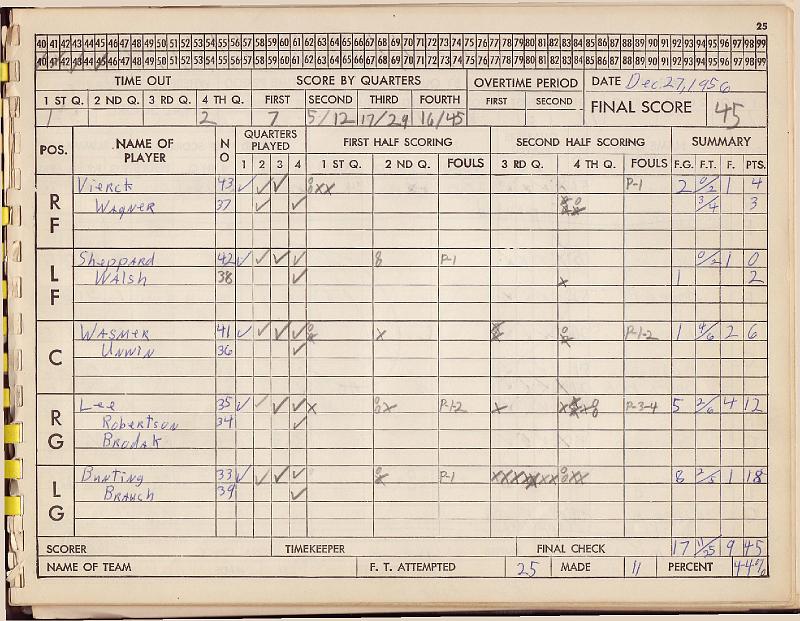 25
40 41 42 43 44 45 46 47 48 49 50 51 52 53 54 55 56 57 58 59 60 61 62 63 64 65 66 67 68 69 70 71 72 73 74 75 76 77 78 79 80 81 82 83 84 85 86 87 88 89 90 91 92 93 94 95 96 97 98 99
40 41 42 43 44 45 46 47 48 49 50 51 52 53 54 55 56 57 58 59 60 61 62 63 64 65 66 67 68 69 70 71 72 73 74 75 76 77 78 79 80 81 82 83 84 85 86 87 88 89 90 91 92 93 94 95 96 97 98 99
TIME OUT SCORE BY QUARTERS OVERTIME PERIOD DATE Dec. 27, 1956
1 ST Q. 2 ND Q. 3 RD Q. 4 TH Q. FIRST SECOND THIRD FOURTH FIRST SECOND FINAL SCORE 45
1 2 7 5/12 17/29 16/45
POS. NAME OF PLAYER NO QUARTERS PLAYED FIRST HALF SCORING SECOND HALF SCORING SUMMARY
1 2 3 4 1 ST Q. 2 ND Q. FOULS 3 RD Q. 4 TH Q. FOULS F.G. F.T. F. PTS.
RF Vierck 43 ✓ ✓ ✓ XX P-1 2 0/2 1 4
Wagner 37 ✓ ✓ 3/4 3
LF Sheppard 42 ✓ ✓ ✓ ✓ P-1 0/2 1 0
Walsh 38 ✓ x 1 2
C Wasmer 41 ✓ ✓ ✓ ✓ x P-1-2 1 4/6 2 6
Unwin 36 ✓
RG Lee 35 ✓ ✓ ✓ ✓ x P-1-2 x P-3-4 5 2/6 4 12
Robertson 34 ✓
Brodak
LG Bunting 33 ✓ ✓ ✓ ✓ P-1 8 2/5 1 18
Brauch 39 ✓
SCORER TIMEKEEPER FINAL CHECK 17 11/25 9 45
NAME OF TEAM F. T. ATTEMPTED 25 MADE 11 PERCENT 44%